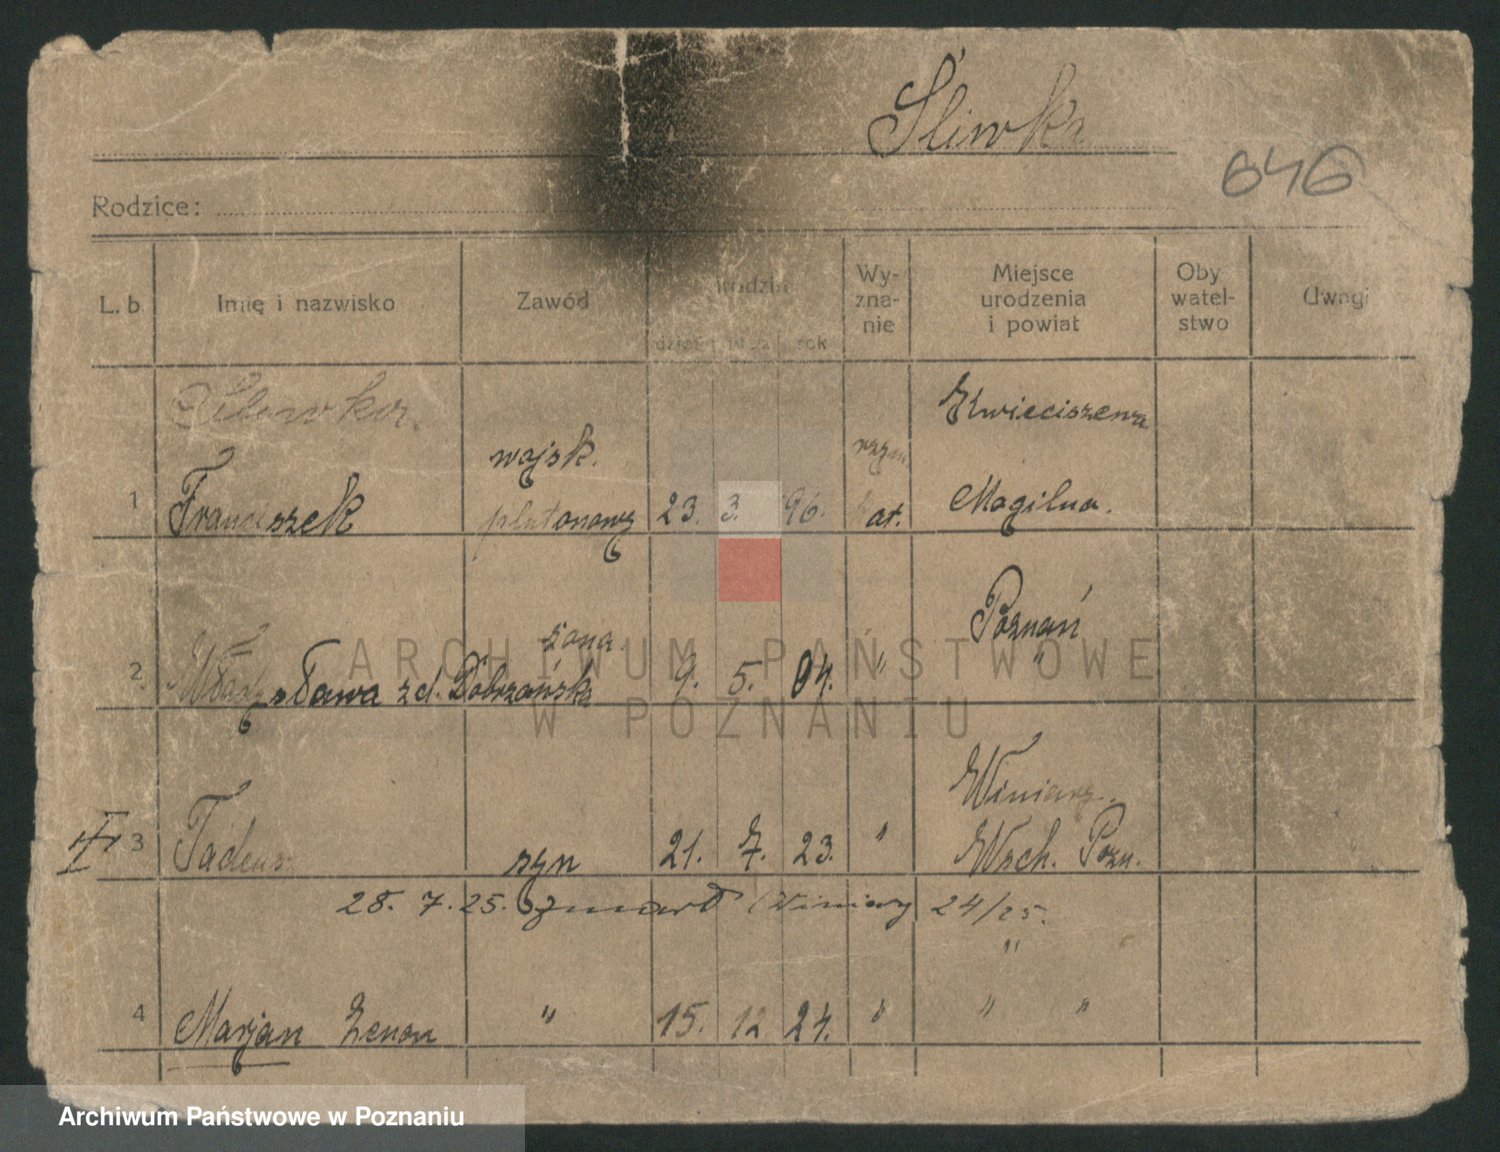 Śliwka
646
Rodzice:
L. b. Imię i nazwisko Zawód dzień rok Wy-zna-nie Miejsce urodzenia i powiat Oby watel-stwo Uwagi
Śliwka
1 Franciszek wojsk. plutonowy 23. 3. 96. rzym kat. Kwieciszewa Mogilna.
2 Władysława zd. Dobrzańska żona. 9. 5. 04. " Poznań "
3 Tadeusz syn 21. 7. 23. " Winiary Wsch. Pozn.
28. 7. 25. zmarł Winiary 24/25.
"
4 Marjan Zenon " 15. 12 24. " " "
ARCHIWUM PAŃSTWOWE
W POZNANIU
Archiwum Państwowe w Poznaniu